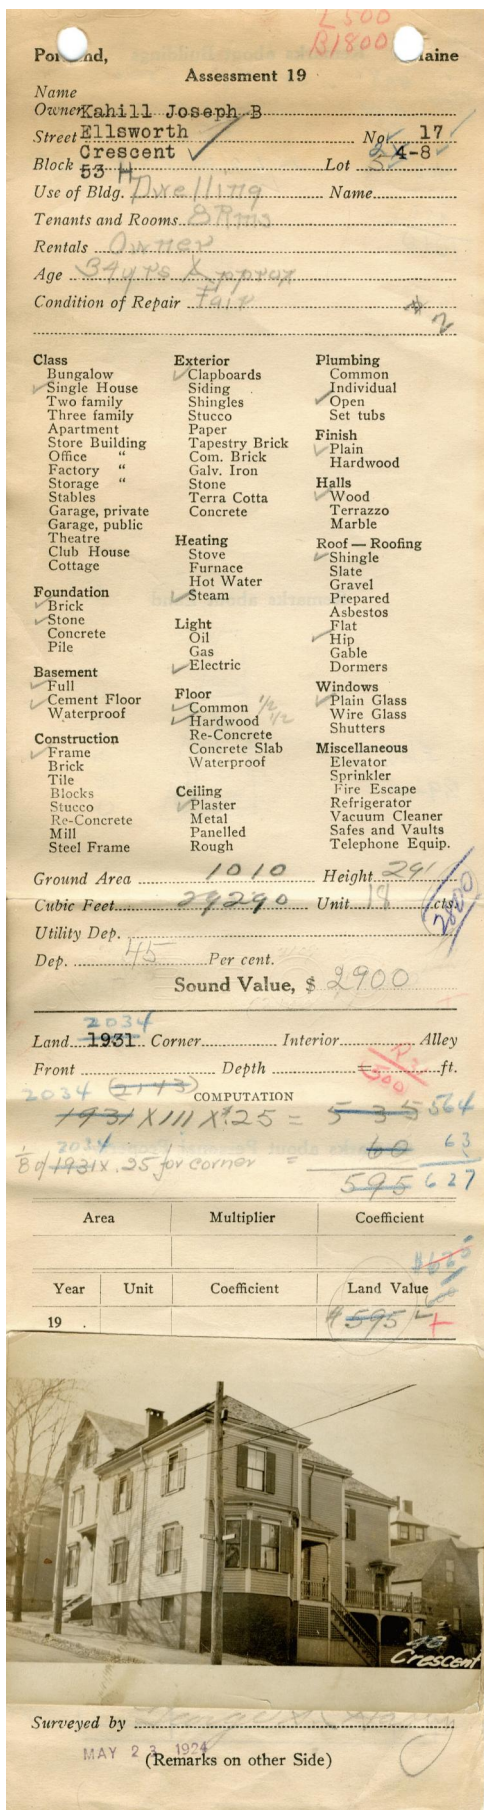 L500
B1800
Portland, Maine
Assessment 19
Name
Owner Kahill Joseph B
Street Ellsworth No. 17
Crescent 4-8
Block 53 H Lot
Use of Bldg. Dwelling Name
Tenants and Rooms 8 Rms
Rentals Owner
Age 34 yrs Approx
Condition of Repair Fair
# 2
Class
Bungalow
Single House
Two family
Three family
Apartment
Store Building
Office "
Factory "
Storage "
Stables
Garage, private
Garage, public
Theatre
Club House
Cottage
Foundation
Brick
Stone
Concrete
Pile
Basement
Full
Cement Floor
Waterproof
Construction
Frame
Brick
Tile
Blocks
Stucco
Re-Concrete
Mill
Steel Frame
Exterior
Clapboards
Siding
Shingles
Stucco
Paper
Tapestry Brick
Com. Brick
Galv. Iron
Stone
Terra Cotta
Concrete
Heating
Stove
Furnace
Hot Water
Steam
Light
Oil
Gas
Electric
Floor
Common 1/2
Hardwood 1/2
Re-Concrete
Concrete Slab
Waterproof
Ceiling
Plaster
Metal
Panelled
Rough
Plumbing
Common
Individual
Open
Set tubs
Finish
Plain
Hardwood
Halls
Wood
Terrazzo
Marble
Roof — Roofing
Shingle
Slate
Gravel
Prepared
Asbestos
Flat
Hip
Gable
Dormers
Windows
Plain Glass
Wire Glass
Shutters
Miscellaneous
Elevator
Sprinkler
Fire Escape
Refrigerator
Vacuum Cleaner
Safes and Vaults
Telephone Equip.
Ground Area 1010 Height 29'
Cubic Feet 29290 Unit 18 cts.
2800
Utility Dep.
Dep. 45 Per cent.
Sound Value, $ 2900
2034
Land 1931 Corner Interior Alley
Front Depth = ft.
500
2034 (2143)
COMPUTATION
1931 X 111 X $.25 = 535 564
2034 60 63
1/8 of 1931 x .25 for corner = 595 627
Area Multiplier Coefficient
$625
Year Unit Coefficient Land Value
600
19 . $595
48
Crescent
Surveyed by
MAY 23 1924
(Remarks on other Side)